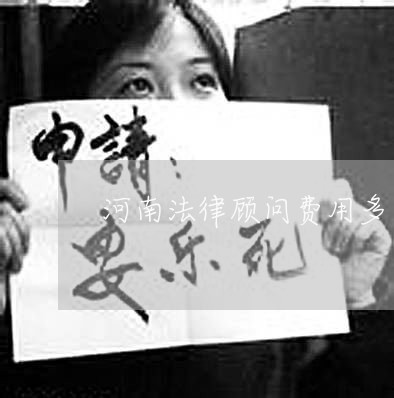 申請：
河南法律顾问费用多
安乐死